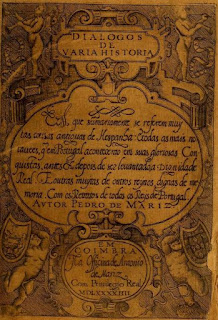 DIALOGOS
DE
VARIA HISTORIA
que sumariamente se referem muy-
tas cousas antiguas de Hespanha: E todas as mais no-
taueis, q̃ em Portugal acontecerão em suas gloriosas Con-
quistas, antes & depois de ser leuantado a Dignidade
Real. E outras muytas de outros reynos dignas de me-
moria. Com os Retratos de todos os Reys de Portugal.
AVTOR PEDRO DE MARIZ.
EM
COIMBRA
Na Officina de Antonio
de Mariz.
Com Priuilegio Real